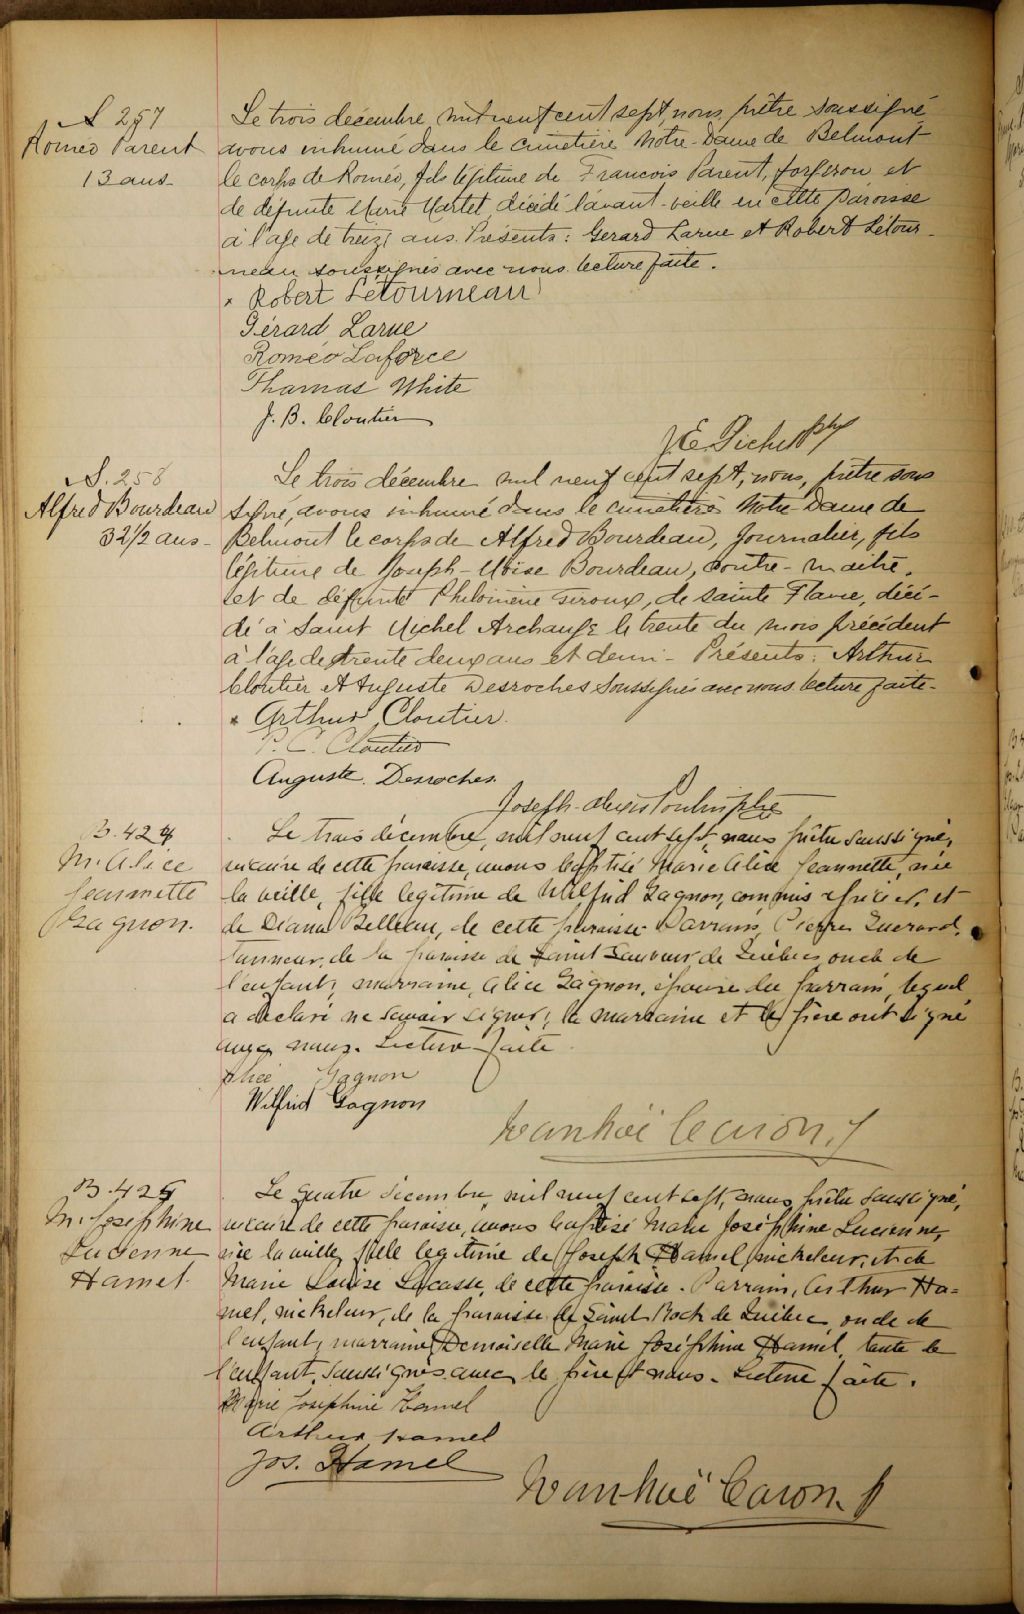 S 257
Roméo Parent
13 ans
Le trois décembre, mil neuf cent sept, nous, prêtre soussigné
avons inhumé dans le cimetière Notre-Dame de Belmont
le corps de Roméo, fils légitime de Francois Parent, forgeron et
de défunte Marie Martel, décédé l'avant-veille en cette paroisse
à l'age de treize ans. Présents: Gerard Larue et Robert Létour-
neau soussignés avec nous. Lecture faite.
x Robert Létourneau
Gérard Larue
Roméo Laforce
Thomas White
J. B. Cloutier
J. E. Pichet ptre
S. 258
Alfred Bourdeau
32 1/2 ans
Le trois décembre mil neuf cent sept, nous, prêtre sous
signé, avons inhumé dans le cimetière Notre-Dame de
Belmont le corps de Alfred Bourdeau, journalier, fils
légitime de Joseph-Moise Bourdeau, contre-maître,
et de défunte Philomène Giroux, de Sainte Flavie, décé-
dé à Saint Michel Archange le trente du mois précédent
à l'age de trente deux ans et demi - Présents: Arthur
Cloutier et Auguste Desroches soussignés avec nous. Lecture faite-
x Arthur Cloutier.
P. C. Cloutier
Auguste. Desroches.
Joseph- Poulin ptre
B. 424
M. Alice
Jeannette
Gagnon.
Le trois décembre, mil neuf cent sept, nous prêtre soussigné,
vicaire de cette paroisse, avons baptisé Marie Alice Jeannette, née
la veille, fille legitime de Wilfrid Gagnon, commis épicier, et
de Diana Belleau, de cette paroisse. Parrain, Pierre Guerard,
tanneur, de la paroisse de Saint Sauveur de Québec, oncle de
l'enfant; marraine, Alice Gagnon, épouse du parrain, lequel
a déclaré ne savoir signer; la marraine et le père ont signé
avec nous. Lecture faite
Alice Gagnon
Wilfrid Gagnon
Ivanhoë Caron, p
B. 425
M. Joséphine
Lucienne
Hamel.
Le quatre décembre mil neuf cent sept, nous prêtre soussigné,
vicaire de cette paroisse, avons baptisé Marie Joséphine Lucienne,
née la veille, fille legitime de Joseph Hamel, nickeleur, et de
Marie Louise Lacasse, de cette paroisse. Parrain, Arthur Ha-
mel, nickeleur, de la paroisse de Saint Roch de Québec, oncle de
l'enfant; marraine, Demoiselle Marie Joséphine Hamel, tante de
l'enfant, soussignés avec le père et nous. Lecture faite.
Marie Josephine Hamel
Arthur Hamel
Jos. Hamel
Ivanhoë Caron. p